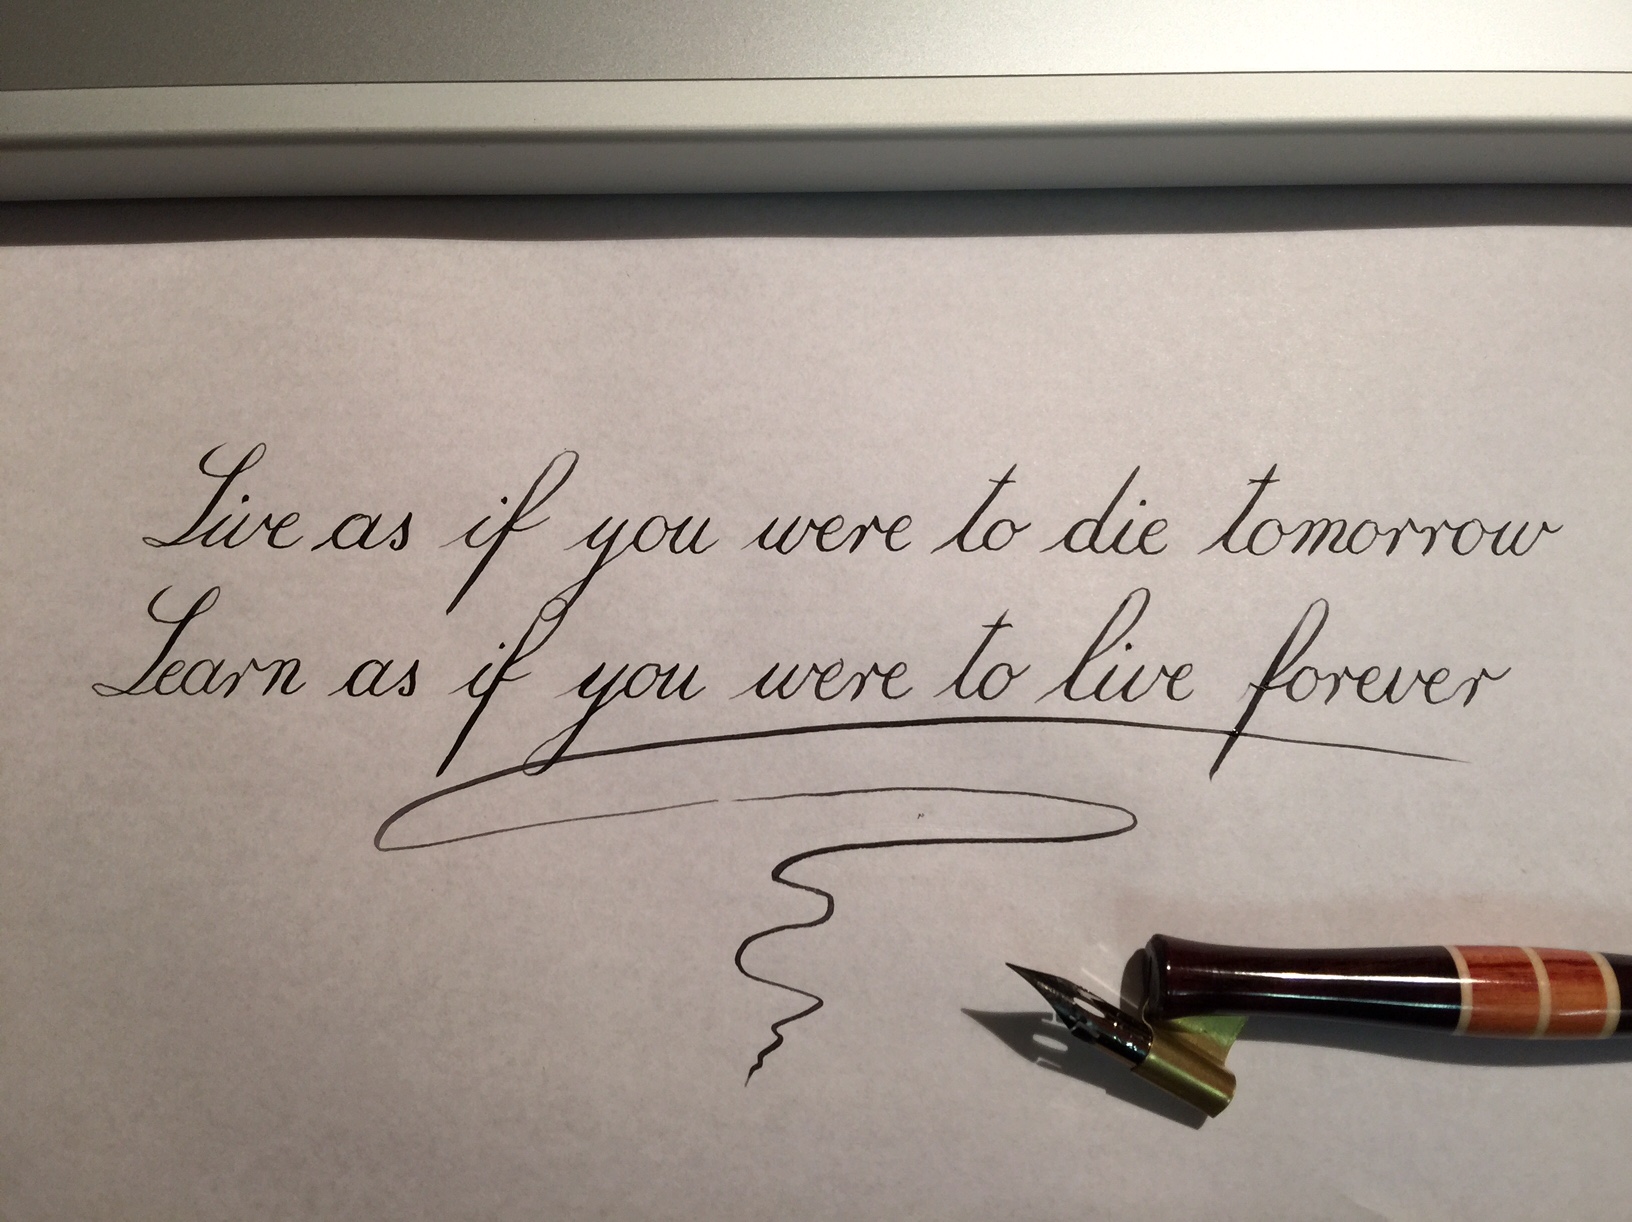 Live as if you were to die tomorrow
Learn as if you were to live forever